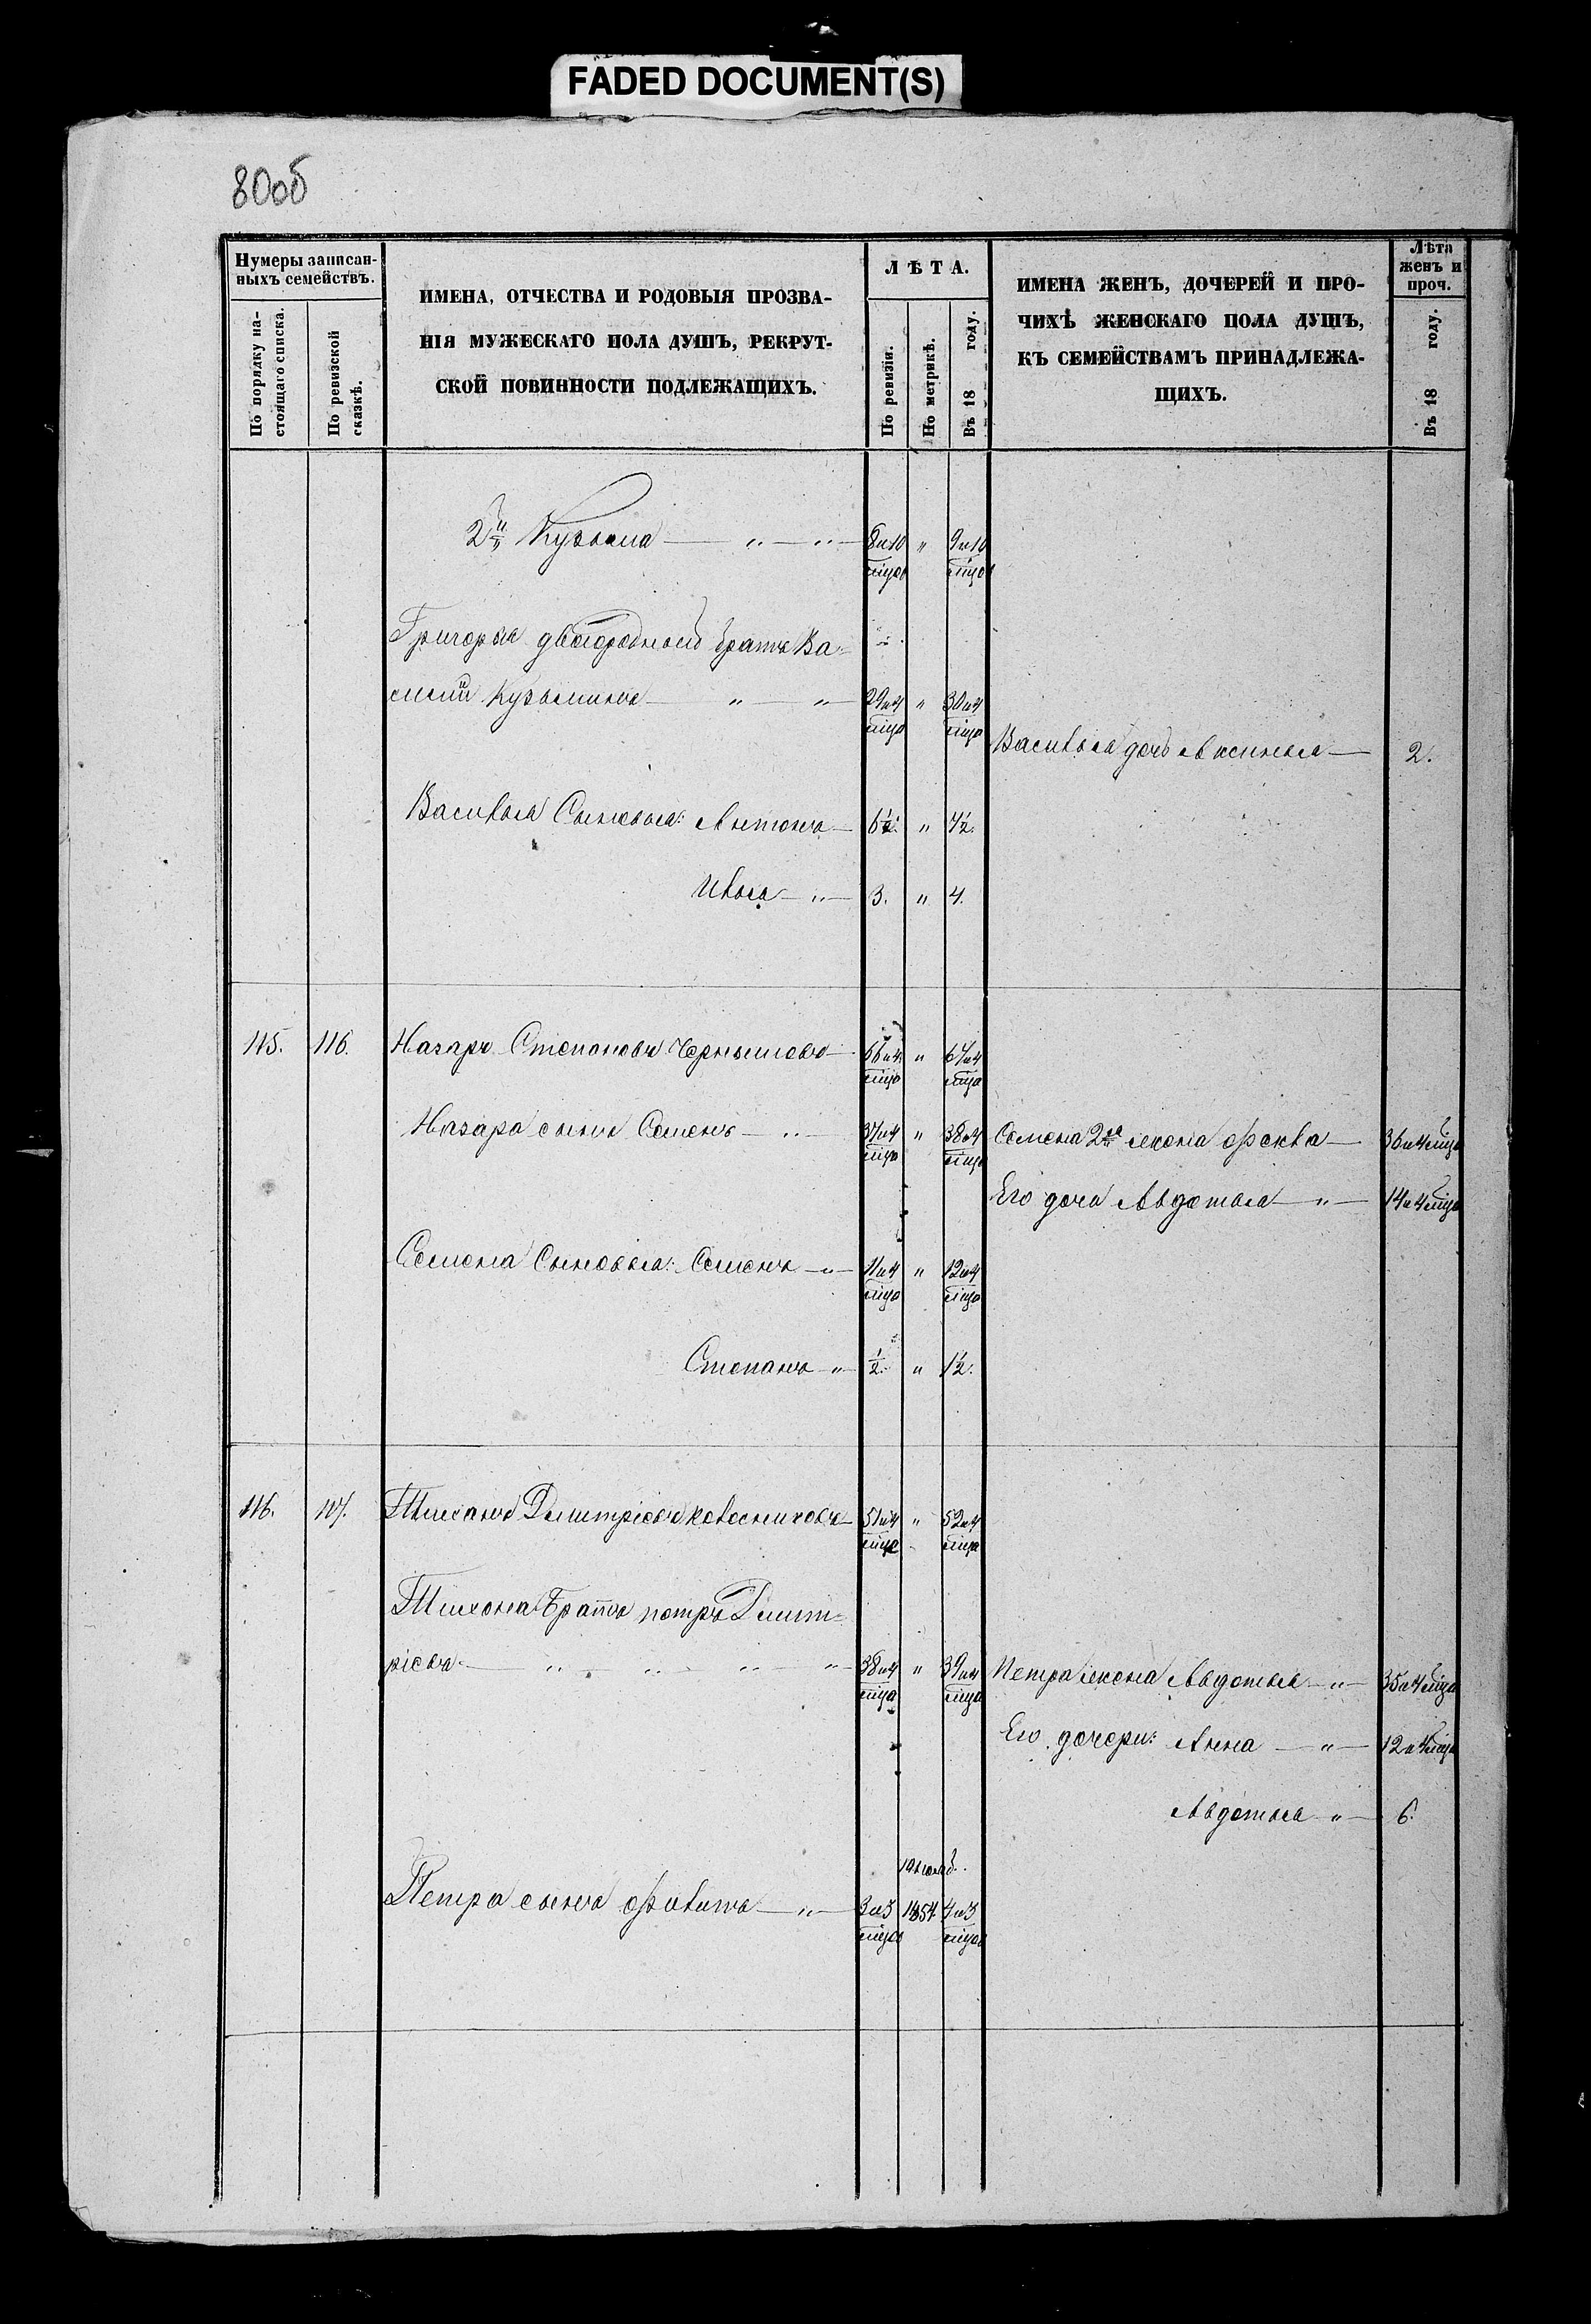 FADED DOCUMENT(S)
80об
Нумеры записан-
ныхъ семействъ.
По порядку на-
стоящаго списка.
По ревизской
сказкѣ.
ИМЕНА, ОТЧЕСТВА И РОДОВЫЯ ПРОЗВА-
НІЯ МУЖЕСКАГО ПОЛА ДУШЪ, РЕКРУТ-
СКОЙ ПОВИННОСТИ ПОДЛЕЖАЩИХЪ.
ЛѢТА.
По ревизіи.
По метрикѣ.
Въ 18 году.
ИМЕНА ЖЕНЪ, ДОЧЕРЕЙ И ПРО-
ЧИХЪ ЖЕНСКАГО ПОЛА ДУШЪ,
КЪ СЕМЕЙСТВАМЪ ПРИНАДЛЕЖА-
ЩИХЪ.
Лѣта
женъ и
проч.
Въ 18 году.
2й Кузьма — " — " — 8 и 10 мцов " 9 и 10 мцов
Григорья двоюродный братъ Ва-
силий Кузьминъ — " — " — 29 и 4 мца " 30 и 4 мца
Василья дочь Аксинья — 2.
Василья Сыновья: Антонъ — 6½. " 7½.
Илья — " — 3. " 4.
115. 116. Назаръ Степановъ Чернышовъ — 66 и 4 мца " 67 и 4 мца
Назара сынъ Семенъ — " — 37 и 4 мца " 38 и 4 мца Семена 2я жена Фекла — 36 и 4 мца
Его дочь Авдотья — " — 14 и 4 мца
Семена Сыновья: Семенъ — " — 11 и 4 мца " 12 и 4 мца
Степанъ — " — ½. " 1½.
116. 117. Тиханъ Дмитріевъ — 51 и 4 мца " 52 и 4 мца
Тихона Братъ петръ Дмит-
ріевъ — " — " — " — " — 38 и 4 мца " 39 и 4 мца Петра жена Авдотья — " — 35 и 4 мца
Его дочери: Анна — " — 12 и 4 мца
Авдотья — " — 6.
Петра сынъ Филипъ — " — 3 и 5 мцов 1854 4 и 5 мцов